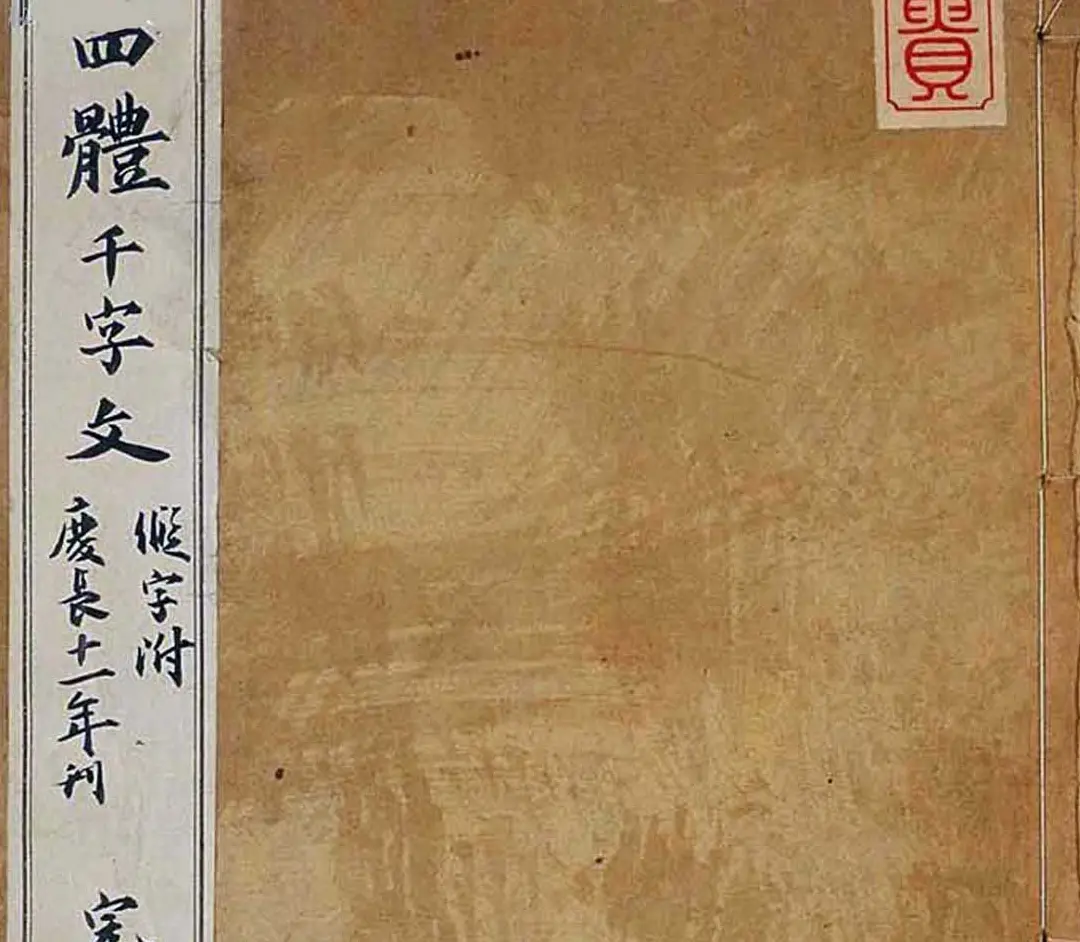 貴
四體千字文
假字附
慶長十一年刊